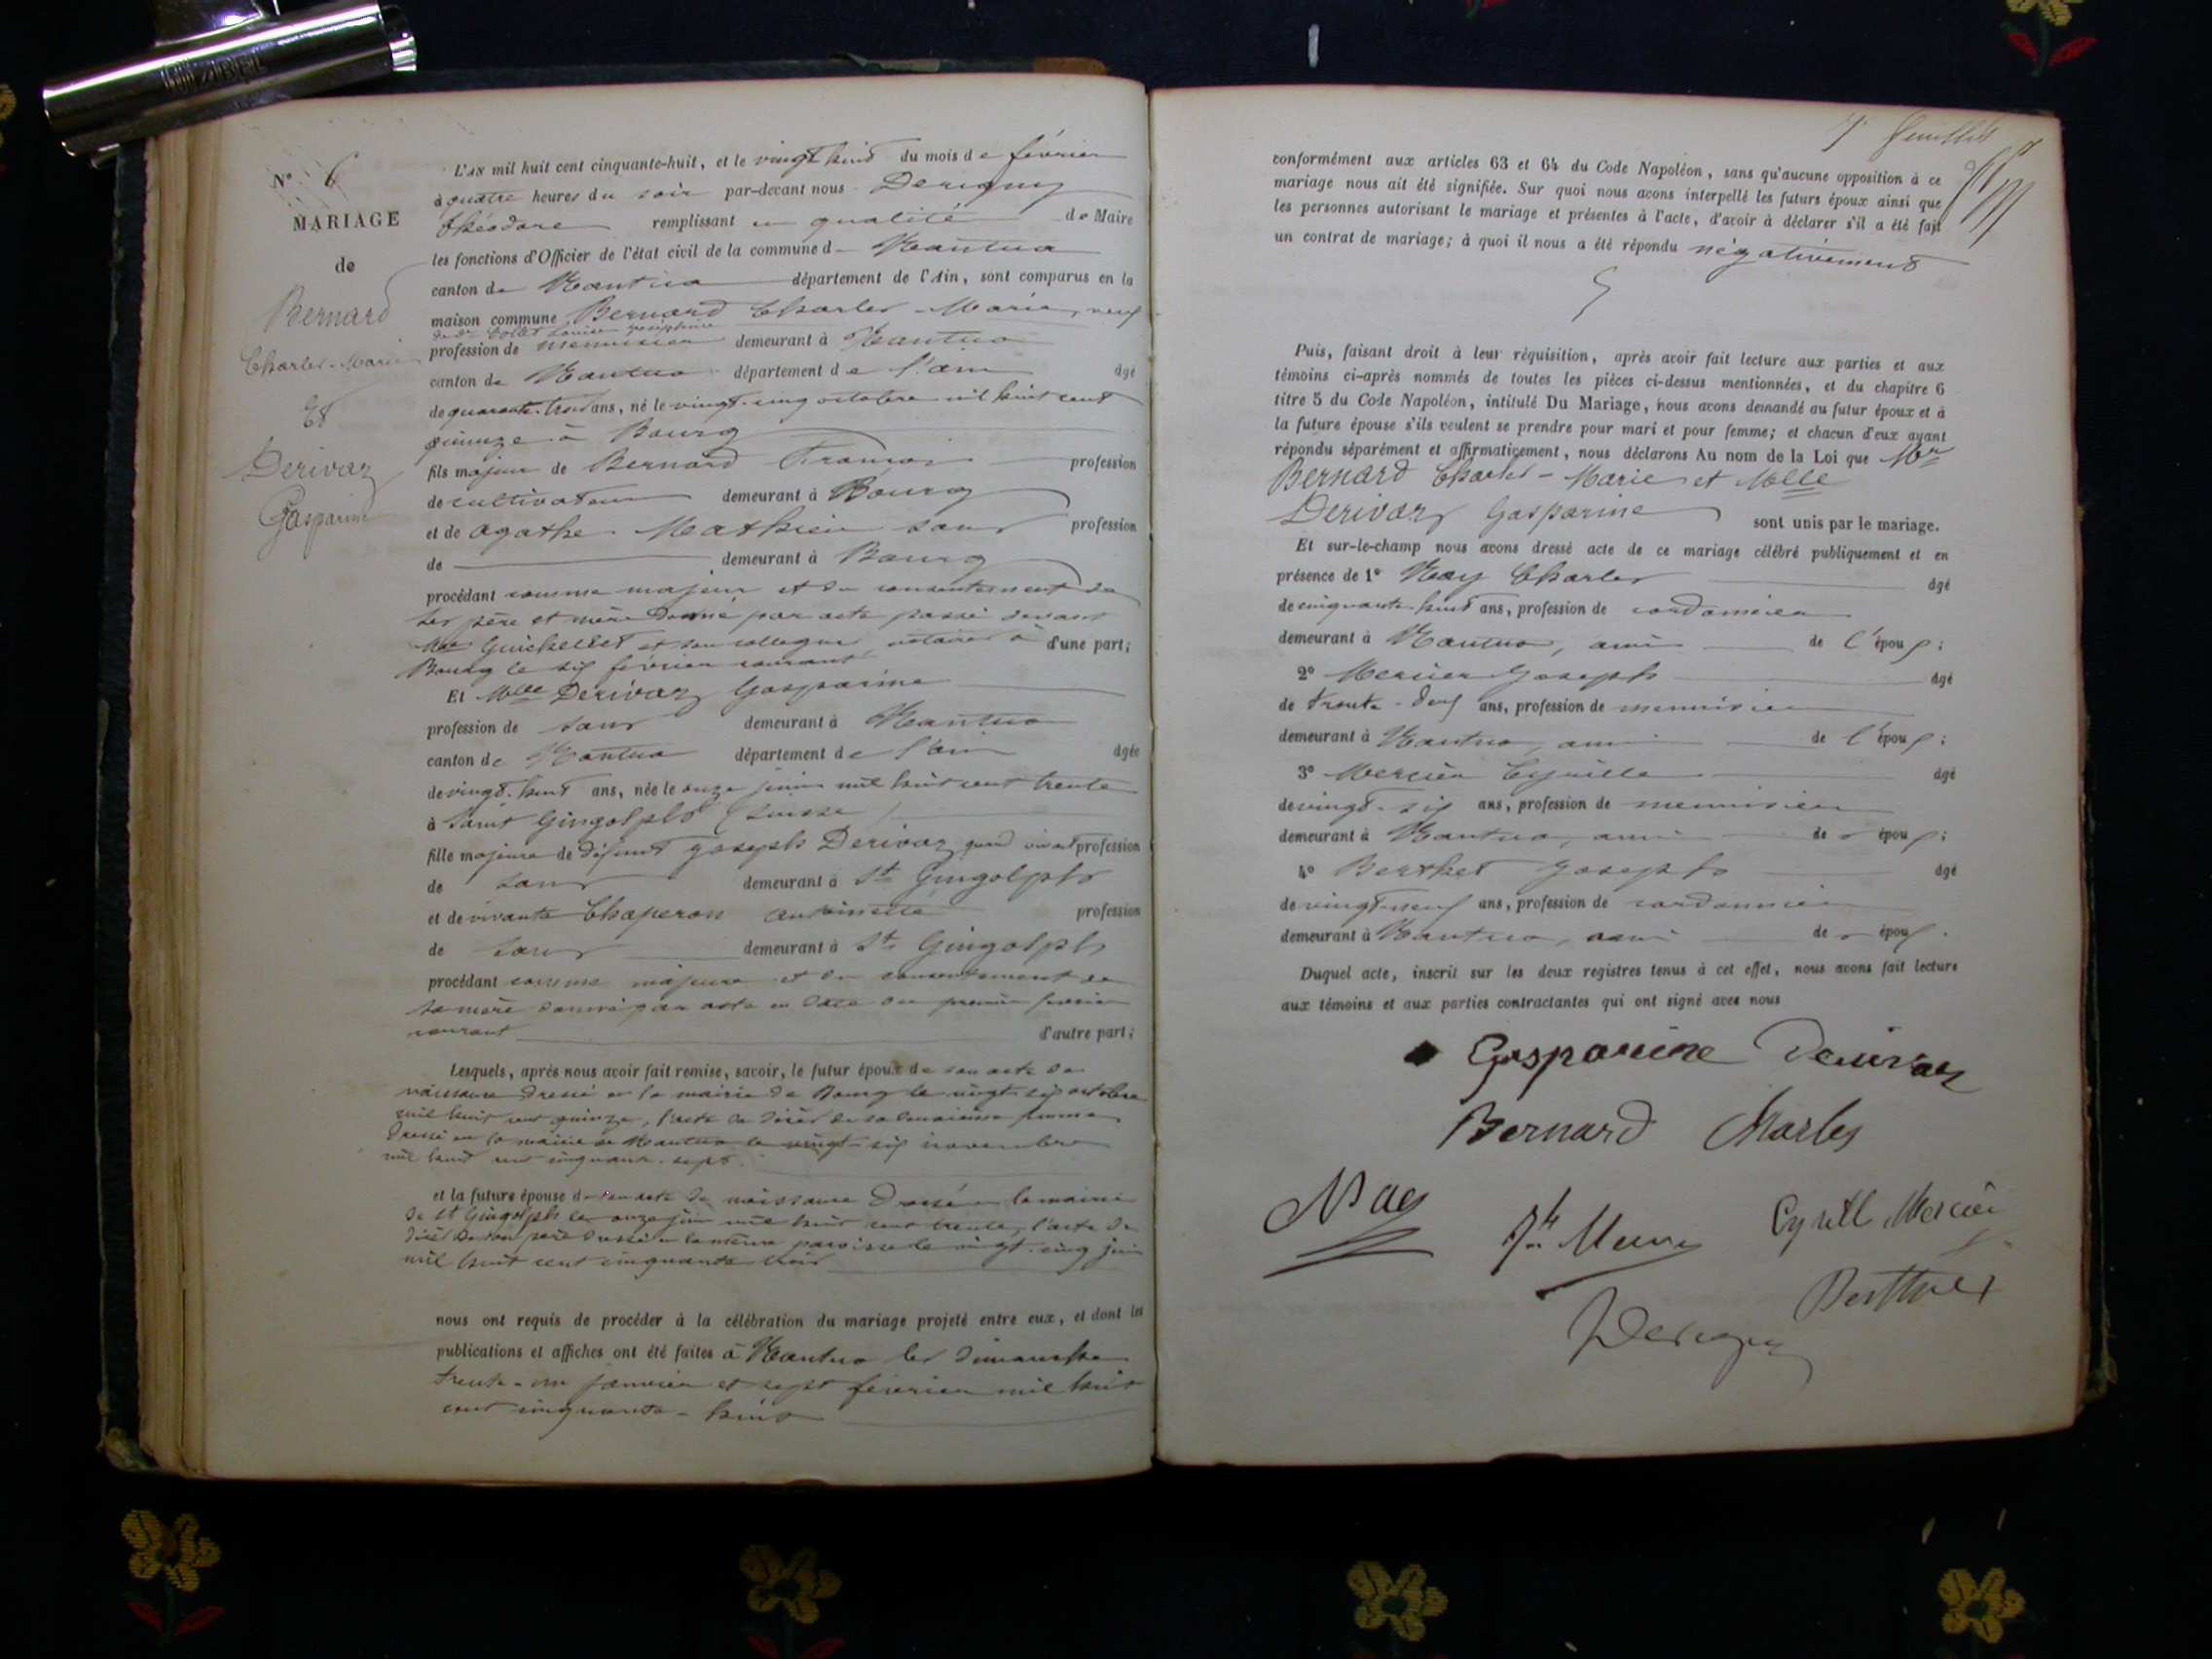 N° 6
MARIAGE
de
Bernard
Charles-Marie
Et
Derivaz
Gasparine
L'AN mil huit cent cinquante-huit, et le vingt huit du mois de février
à quatre heures du soir par-devant nous Derigny
théodore remplissant en qualité de Maire
les fonctions d'Officier de l'état civil de la commune d Nantua
canton de Nantua département de l'Ain, sont comparus en la
maison commune Bernard Charles-Marie, veuf
de Louise Joséphine
profession de menuisier demeurant à Nantua
canton de Nantua département de l'ain âgé
de quarante-trois ans, né le vingt-cinq octobre mil huit cent
quinze à Bourg
fils majeur de Bernard François profession
de cultivateur demeurant à Bourg
et de agathe Mathieu sans profession
de demeurant à Bourg
procédant comme majeur et du consentement de
ses père et mère donné par acte passé devant
Me Guichellet et son collegue, notaires à d'une part;
Bourg le six février courant
Et Mlle Derivaz Gasparine
profession de sans demeurant à Nantua
canton de Nantua département de l'ain âgée
de vingt-huit ans, née le onze juin mil huit cent trente
à Saint Gingolph (Suisse)
fille majeure de défunt Joseph Derivaz quand vivant profession
de sans demeurant à St Gingolph
et de vivante Chaperon antoinette profession
de sans demeurant à St Gingolph
procédant comme majeure et du consentement de
sa mère donné par acte en date du premier février
courant d'autre part;
Lesquels, après nous avoir fait remise, savoir, le futur époux de son acte de
naissance dressé en la mairie de Bourg le vingt-six octobre
mil huit cent quinze, l'acte de décès de sa femme
dressé en la mairie de Nantua le vingt-six novembre
mil huit cent cinquante-sept.
et la future épouse de son acte de naissance dressé en la mairie
de St Gingolph le onze juin mil huit cent trente, l'acte de
décès de son père dressé en la même paroisse le vingt-cinq juin
mil huit cent cinquante trois
nous ont requis de procéder à la célébration du mariage projeté entre eux, et dont les
publications et affiches ont été faites à Nantua les dimanches
trente-un janvier et sept février mil huit
cent cinquante-huit
7e feuillet
conformément aux articles 63 et 64 du Code Napoléon, sans qu'aucune opposition à ce
mariage nous ait été signifiée. Sur quoi nous avons interpellé les futurs époux ainsi que
les personnes autorisant le mariage et présentes à l'acte, d'avoir à déclarer s'il a été fait
un contrat de mariage; à quoi il nous a été répondu négativement
Puis, faisant droit à leur réquisition, après avoir fait lecture aux parties et aux
témoins ci-après nommés de toutes les pièces ci-dessus mentionnées, et du chapitre 6
titre 5 du Code Napoléon, intitulé Du Mariage, nous avons demandé au futur époux et à
la future épouse s'ils veulent se prendre pour mari et pour femme; et chacun d'eux ayant
répondu séparément et affirmativement, nous déclarons Au nom de la Loi que Mr
Bernard Charles-Marie et Mlle
Derivaz Gasparine sont unis par le mariage.
Et sur-le-champ nous avons dressé acte de ce mariage célébré publiquement et en
présence de 1° Nay Charles âgé
de cinquante-huit ans, profession de cordonnier
demeurant à Nantua, ami de l'époux;
2° Mercier Joseph âgé
de trente-deux ans, profession de menuisier
demeurant à Nantua, ami de l'époux;
3° Mercier Cyrille âgé
de vingt-six ans, profession de menuisier
demeurant à Nantua, ami de époux;
4° Berthet Joseph âgé
de vingt-neuf ans, profession de cordonnier
demeurant à Nantua, ami de époux.
Duquel acte, inscrit sur les deux registres tenus à cet effet, nous avons fait lecture
aux témoins et aux parties contractantes qui ont signé avec nous
Gasparine Derivaz
Bernard Charles
Nay
Cyrill Mercier
Berthet
Derigny